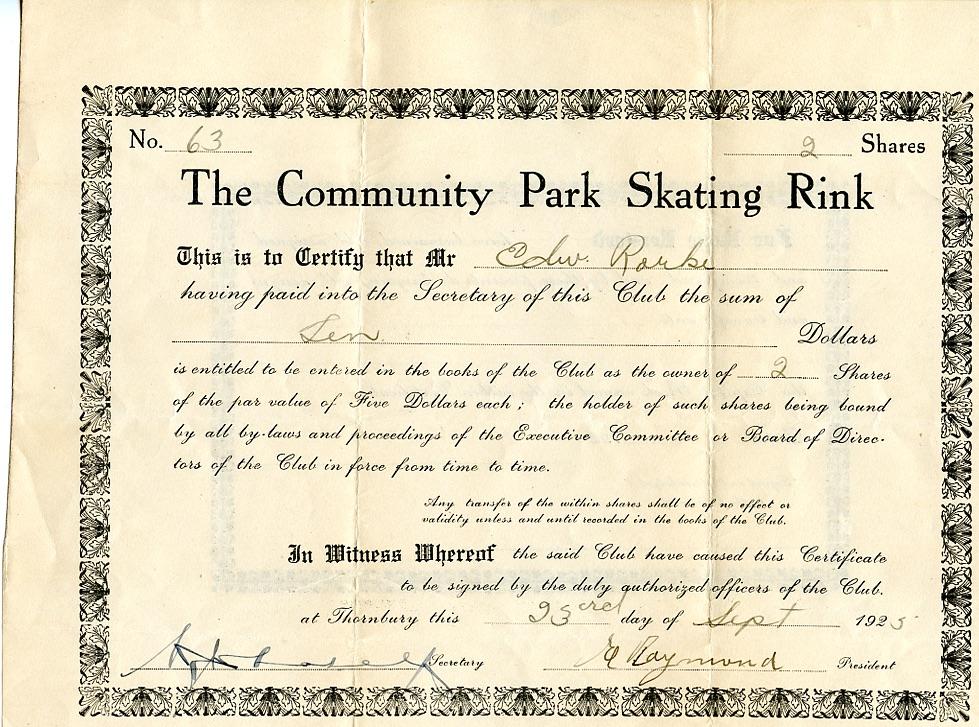 No. 63 2 Shares
The Community Park Skating Rink
This is to Certify that Mr Edw. Rorke
having paid into the Secretary of this Club the sum of
Ten Dollars
is entitled to be entered in the books of the Club as the owner of 2 Shares
of the par value of Five Dollars each; the holder of such shares being bound
by all by-laws and proceedings of the Executive Committee or Board of Direc-
tors of the Club in force from time to time.
Any transfer of the within shares shall be of no effect or
validity unless and until recorded in the books of the Club.
In Witness Whereof the said Club have caused this Certificate
to be signed by the duly authorized officers of the Club.
at Thornbury this 23rd day of Sept 1925
Secretary E Raymond President